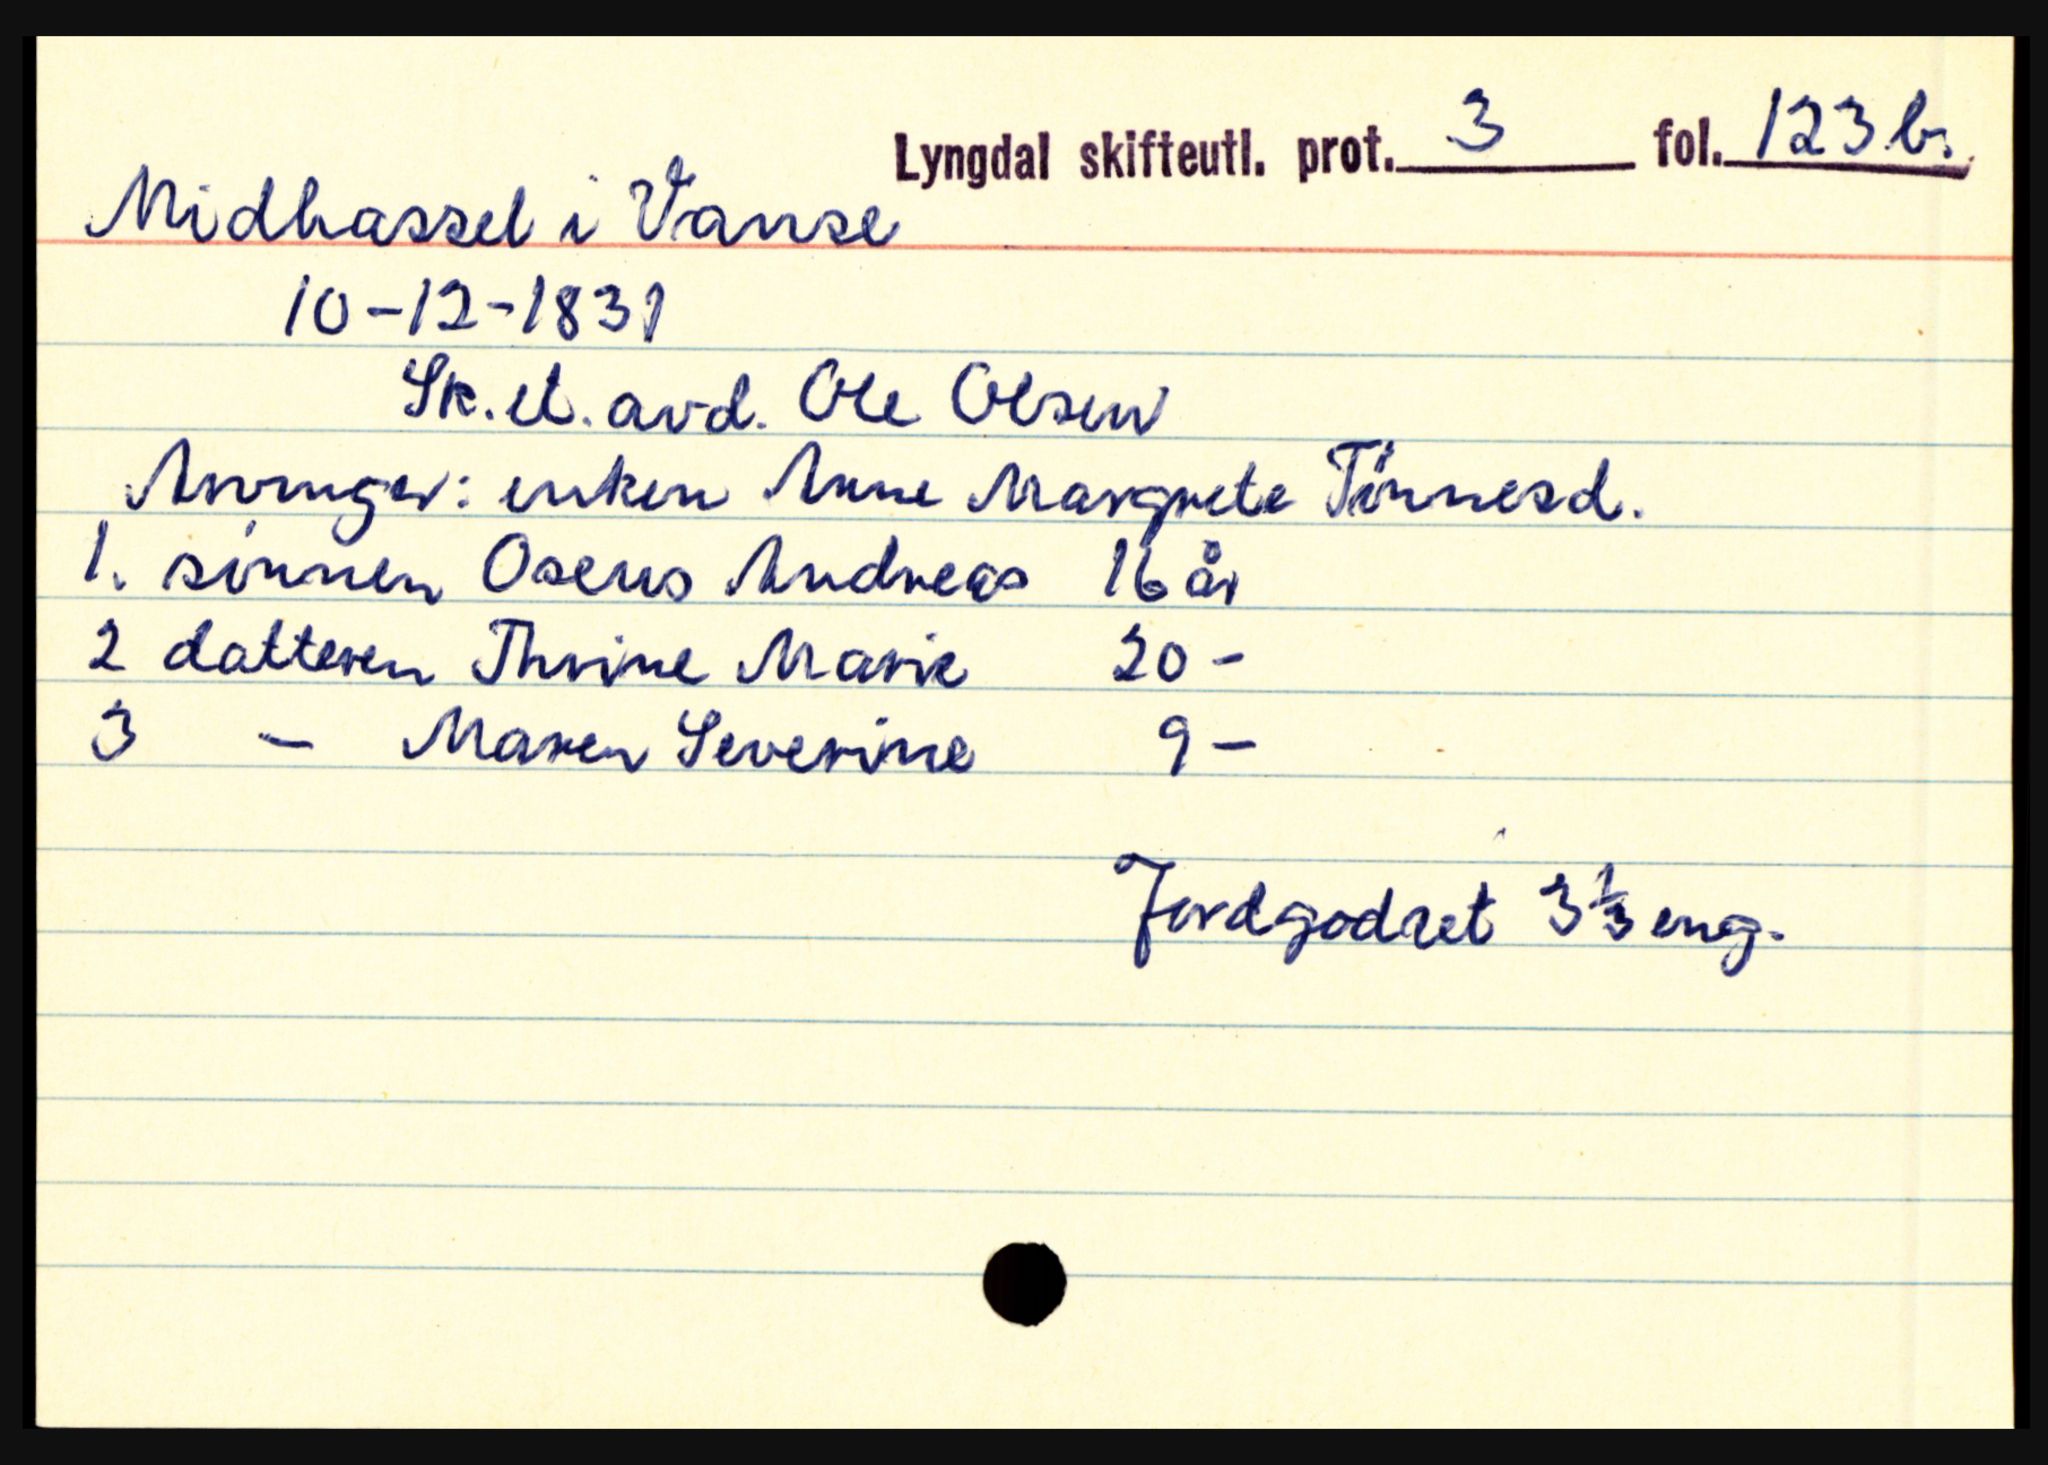 Lyngdal skifteutl. prot. 3 fol. 123 b.
Midhassel i Vanse
10-12-1831
Sk. et. avd. Ole Olsen
Arvinger: enken Anne Margrete Tönnesd.
1. sönnen Oseus Andreas 16 år
2 datteren Thrine Marie 20 -
3 - Maren Severine 9 -
Jordgodset 3 1/3 eng.